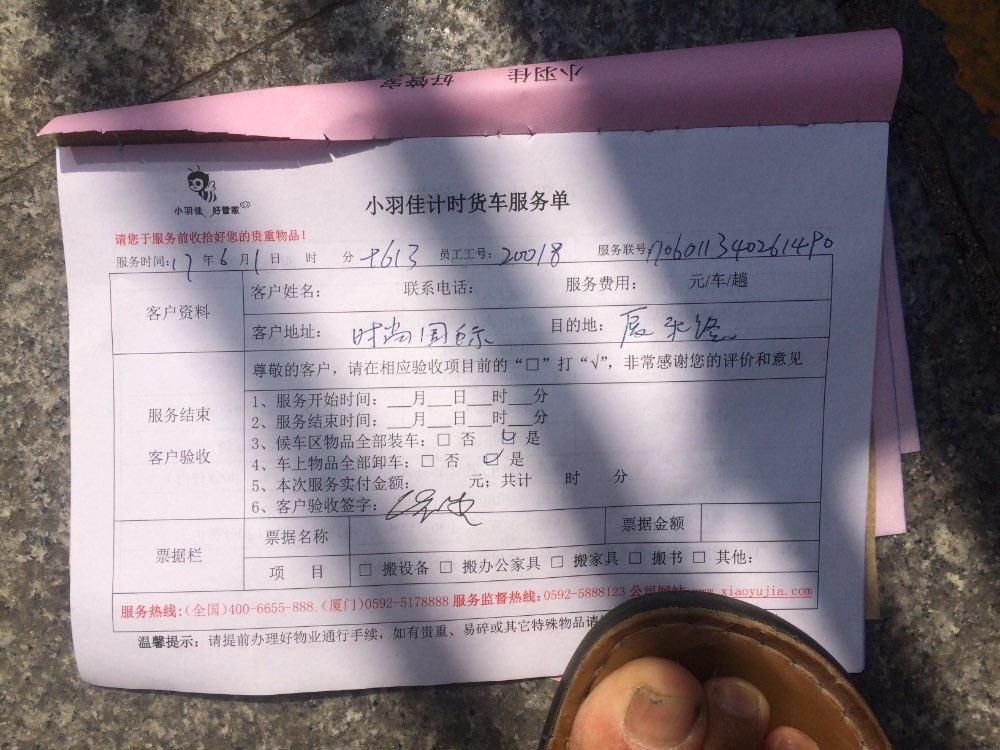 小羽佳 好管家
小羽佳 好管家
小羽佳计时货车服务单
请您于服务前收拾好您的贵重物品！
服务时间: 17 年 6 月 1 日 时 分 员工工号: 20018 服务联号
客户资料
客户姓名: 联系电话: 服务费用: 元/车/趟
客户地址: 时尚国际 目的地:
尊敬的客户，请在相应验收项目前的“□”打“√”，非常感谢您的评价和意见
服务结束
客户验收
1、服务开始时间：___月___日___时___分
2、服务结束时间：___月___日___时___分
3、候车区物品全部装车：□ 否 ☑ 是
4、车上物品全部卸车：□ 否 ☑ 是
5、本次服务实付金额： 元；共计 时 分
6、客户验收签字：
票据栏
票据名称 票据金额
项 目 □ 搬设备 □ 搬办公家具 □ 搬家具 □ 搬书 □ 其他:
服务热线:(全国)400-6655-888.(厦门)0592-5178888 服务监督热线:0592-5888123 公司网站 www.xiaoyujia.com
温馨提示：请提前办理好物业通行手续，如有贵重、易碎或其它特殊物品请